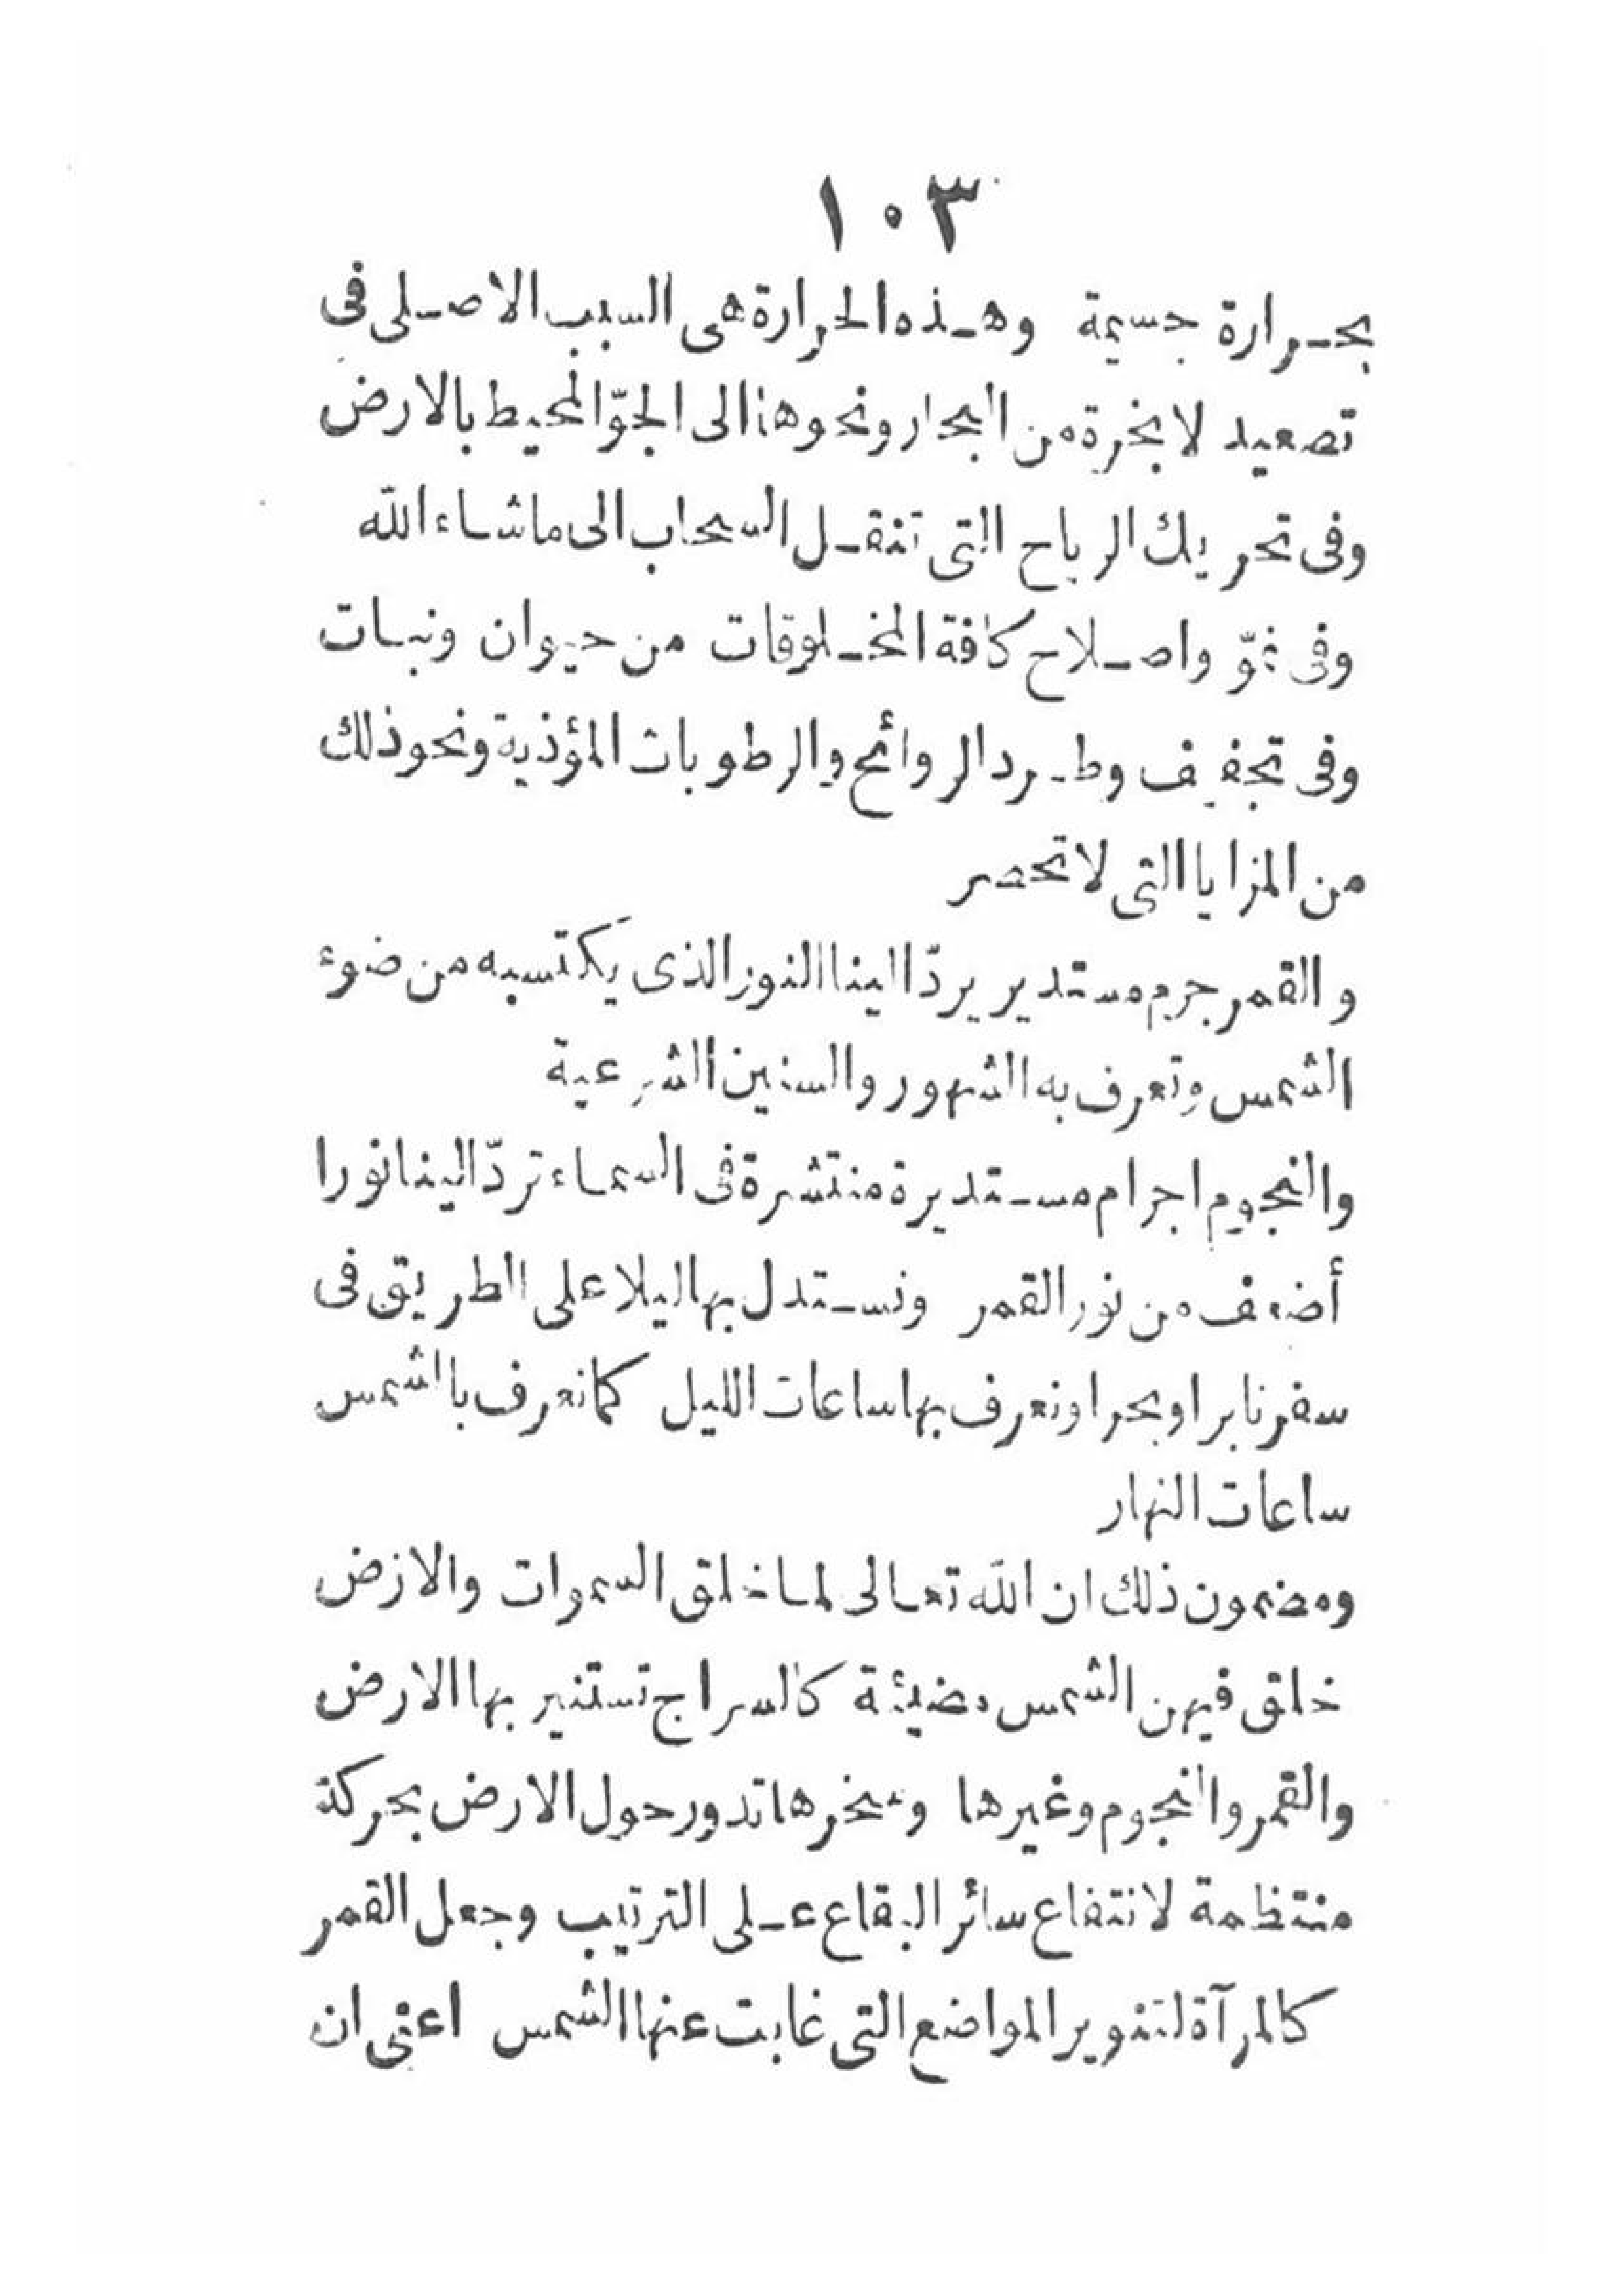 ١٠٣
بحرارة جسيمة وهذه الحرارة هى السبب الاصلى فى
تصعيد لابخرة من البحار ونحوها الى الجوّ المحيط بالارض
وفى تحريك الرياح التى تنقل السحاب الى ماشاء الله
وفى نموّ واصلاح كافة المخلوقات من حيوان ونبات
وفى تجفيف وطرد الروائح والرطوبات المؤذية ونحو ذلك
من المزايا التى لا تحصر
والقمر جرم مستدير يردّ الينا النور الذى يكتسبه من ضوء
الشمس وتعرف به الشهور والسنين الشرعية
والنجوم اجرام مستديرة منتشرة فى السماء تردّ الينا نورا
أضعف من نور القمر ونستدل بها ليلا على الطريق فى
سفرنا برا وبحرا ونعرف بها ساعات الليل كما نعرف بالشمس
ساعات النهار
ومضمون ذلك ان الله تعالى لما خلق السموات والارض
خلق فيهن الشمس مضيئة كالسراج تستنير بها الارض
والقمر والنجوم وغيرها وسخرها تدور حول الارض بحركة
منتظمة لانتفاع سائر البقاع على الترتيب وجعل القمر
كالمرآة لتنوير المواضع التى غابت عنها الشمس اعنى ان